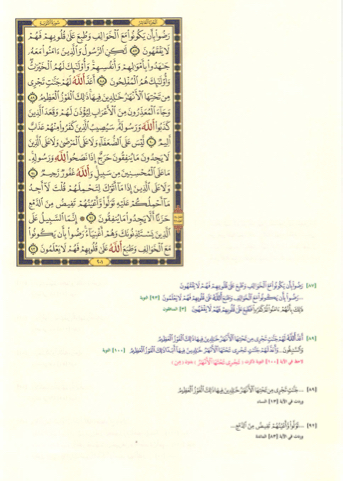 الجزء العاشر سورة التوبة
رَضُوا۟ بِأَن يَكُونُوا۟ مَعَ ٱلْخَوَالِفِ وَطُبِعَ عَلَىٰ قُلُوبِهِمْ فَهُمْ
لَا يَفْقَهُونَ ٨٧ لَٰكِنِ ٱلرَّسُولُ وَٱلَّذِينَ ءَامَنُوا۟ مَعَهُۥ
جَٰهَدُوا۟ بِأَمْوَٰلِهِمْ وَأَنفُسِهِمْ وَأُو۟لَٰٓئِكَ لَهُمُ ٱلْخَيْرَٰتُ
وَأُو۟لَٰٓئِكَ هُمُ ٱلْمُفْلِحُونَ ٨٨ أَعَدَّ ٱللَّهُ لَهُمْ جَنَّٰتٍ تَجْرِى
مِن تَحْتِهَا ٱلْأَنْهَٰرُ خَٰلِدِينَ فِيهَا ذَٰلِكَ ٱلْفَوْزُ ٱلْعَظِيمُ ٨٩
وَجَآءَ ٱلْمُعَذِّرُونَ مِنَ ٱلْأَعْرَابِ لِيُؤْذَنَ لَهُمْ وَقَعَدَ ٱلَّذِينَ
كَذَبُوا۟ ٱللَّهَ وَرَسُولَهُۥ سَيُصِيبُ ٱلَّذِينَ كَفَرُوا۟ مِنْهُمْ عَذَابٌ
أَلِيمٌ ٩٠ لَّيْسَ عَلَى ٱلضُّعَفَآءِ وَلَا عَلَى ٱلْمَرْضَىٰ وَلَا عَلَى ٱلَّذِينَ
لَا يَجِدُونَ مَا يُنفِقُونَ حَرَجٌ إِذَا نَصَحُوا۟ لِلَّهِ وَرَسُولِهِۦ
مَا عَلَى ٱلْمُحْسِنِينَ مِن سَبِيلٍ وَٱللَّهُ غَفُورٌ رَّحِيمٌ ٩١
وَلَا عَلَى ٱلَّذِينَ إِذَا مَآ أَتَوْكَ لِتَحْمِلَهُمْ قُلْتَ لَآ أَجِدُ
مَآ أَحْمِلُكُمْ عَلَيْهِ تَوَلَّوا۟ وَّأَعْيُنُهُمْ تَفِيضُ مِنَ ٱلدَّمْعِ
حَزَنًا أَلَّا يَجِدُوا۟ مَا يُنفِقُونَ ٩٢ إِنَّمَا ٱلسَّبِيلُ عَلَى
ٱلَّذِينَ يَسْتَـْٔذِنُونَكَ وَهُمْ أَغْنِيَآءُ رَضُوا۟ بِأَن يَكُونُوا۟
مَعَ ٱلْخَوَالِفِ وَطَبَعَ ٱللَّهُ عَلَىٰ قُلُوبِهِمْ فَهُمْ لَا يَعْلَمُونَ ٩٣
٢٠١
[٨٧] رَضُوا۟ بِأَن يَكُونُوا۟ مَعَ ٱلْخَوَالِفِ وَطُبِعَ عَلَىٰ قُلُوبِهِمْ فَهُمْ لَا يَفْقَهُونَ
...رَضُوا۟ بِأَن يَكُونُوا۟ مَعَ ٱلْخَوَالِفِ وَطَبَعَ ٱللَّهُ عَلَىٰ قُلُوبِهِمْ فَهُمْ لَا يَعْلَمُونَ [٩٣] التوبة
ذَٰلِكَ بِأَنَّهُمْ ءَامَنُوا۟ ثُمَّ كَفَرُوا۟ فَطُبِعَ عَلَىٰ قُلُوبِهِمْ فَهُمْ لَا يَفْقَهُونَ [٣] المنافقون
[٨٩] أَعَدَّ ٱللَّهُ لَهُمْ جَنَّٰتٍ تَجْرِى مِن تَحْتِهَا ٱلْأَنْهَٰرُ خَٰلِدِينَ فِيهَا ذَٰلِكَ ٱلْفَوْزُ ٱلْعَظِيمُ
وَٱلسَّٰبِقُونَ...وَأَعَدَّ لَهُمْ جَنَّٰتٍ تَجْرِى تَحْتَهَا ٱلْأَنْهَٰرُ خَٰلِدِينَ فِيهَآ أَبَدًا ذَٰلِكَ ٱلْفَوْزُ ٱلْعَظِيمُ [١٠٠] التوبة
[٨٩] ...جَنَّٰتٍ تَجْرِى مِن تَحْتِهَا ٱلْأَنْهَٰرُ خَٰلِدِينَ فِيهَا ذَٰلِكَ ٱلْفَوْزُ ٱلْعَظِيمُ
وردت في الآية [١٣] النساء
[٩٢] ...تَوَلَّوا۟ وَّأَعْيُنُهُمْ تَفِيضُ مِنَ ٱلدَّمْعِ...
وردت في الآية [٨٣] المائدة